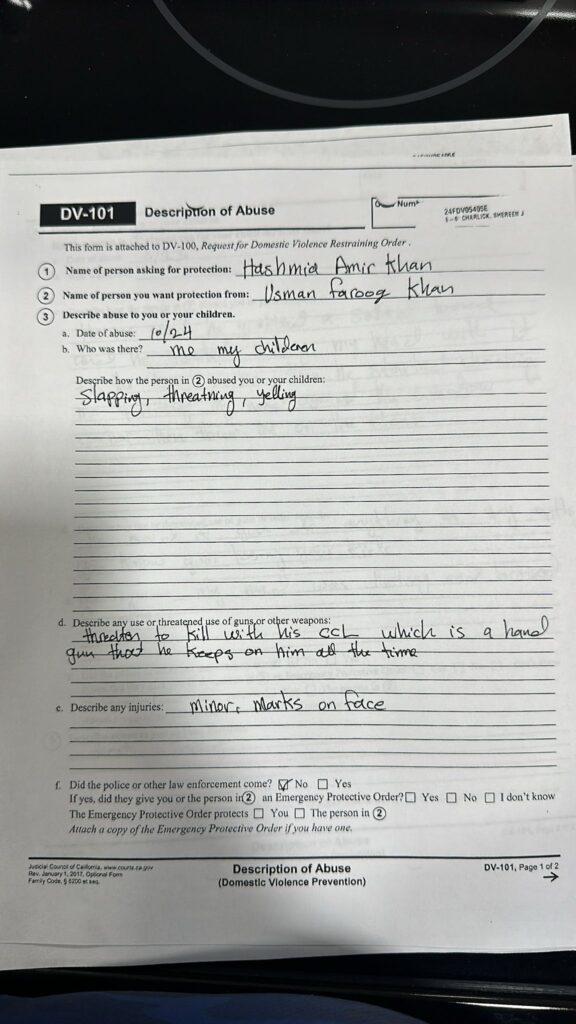 DV-101
Description of Abuse
Num
24FDV05495E
CHARLICK, SHEREEN J
This form is attached to DV-100, Request for Domestic Violence Restraining Order.
1 Name of person asking for protection: Hashmia Amir Khan
2 Name of person you want protection from: Usman farooq Khan
3 Describe abuse to you or your children.
a. Date of abuse: 10/24
b. Who was there? me my childeren
Describe how the person in 2 abused you or your children:
Slapping, threatning, yelling
d. Describe any use or threatened use of guns or other weapons:
threaten to kill with his CCL which is a hand
gun that he keeps on him all the time
e. Describe any injuries: minor, marks on face
f. Did the police or other law enforcement come? ☑ No ☐ Yes
If yes, did they give you or the person in 2 an Emergency Protective Order? ☐ Yes ☐ No ☐ I don't know
The Emergency Protective Order protects ☐ You ☐ The person in 2
Attach a copy of the Emergency Protective Order if you have one.
Judicial Council of California, www.courts.ca.gov
Rev. January 1, 2017, Optional Form
Family Code, § 6200 et seq.
Description of Abuse
(Domestic Violence Prevention)
DV-101, Page 1 of 2
→